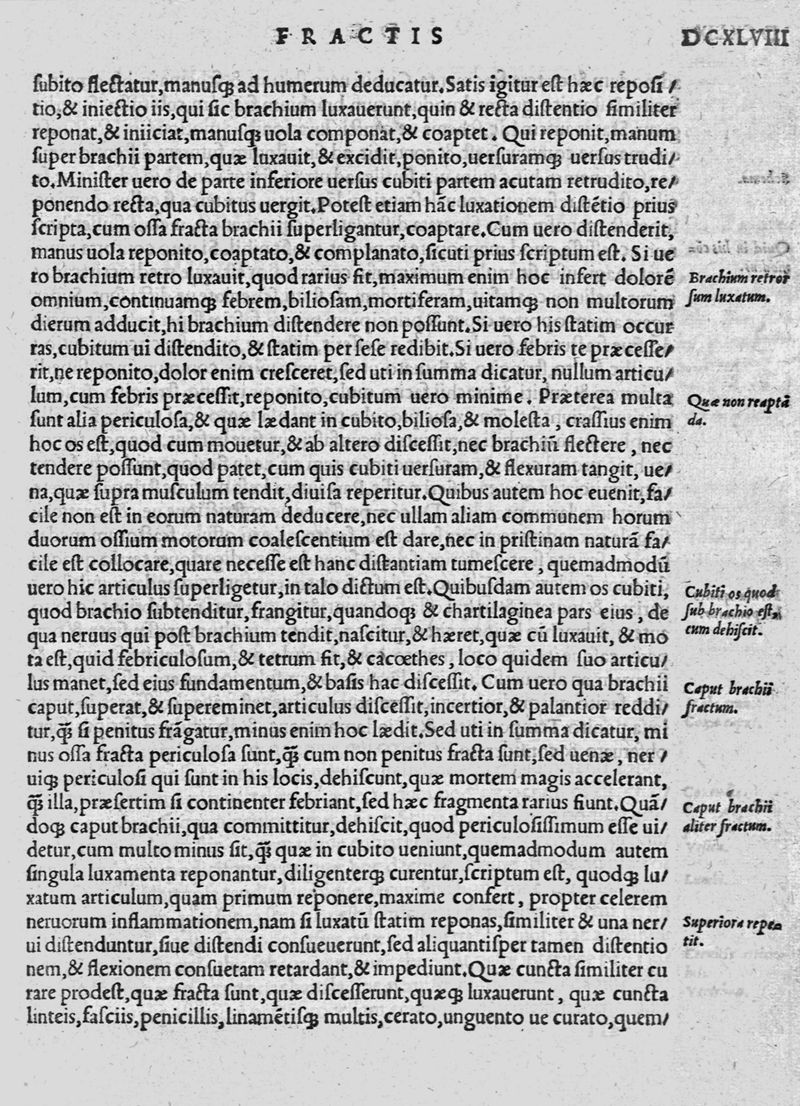 FRACTIS DCXLVIII
ſubito flectatur,manuſq; ad humerum deducatur.Satis igitur eſt hæc repoſi/
tio,& iniectio iis,qui ſic brachium luxauerunt,quin & recta diſtentio ſimiliter
reponat,& iniiciat,manuſq; uola componat,& coaptet. Qui reponit,manum
ſuper brachii partem,quæ luxauit,& excidit,ponito,uerſuramq; uerſus trudi/
to.Miniſter uero de parte inferiore uerſus cubiti partem acutam retrudito,re/
ponendo recta,qua cubitus uergit.Poteſt etiam hāc luxationem diſtētio prius
ſcripta,cum oſſa fracta brachii ſuperligantur,coaptare.Cum uero diſtenderit,
manus uola reponito,coaptato,& complanato,ſicuti prius ſcriptum eſt. Si ue
ro brachium retro luxauit,quod rarius fit,maximum enim hoc infert dolorē
Brachium retror
omnium,continuamq; febrem,bilioſam,mortiferam,uitamq; non multorum
ſum luxatum.
dierum adducit,hi brachium diſtendere non poſſunt.Si uero his ſtatim occur
ras,cubitum ui diſtendito,& ſtatim per ſeſe redibit.Si uero febris te præceſſe/
rit,ne reponito,dolor enim creſceret,ſed uti in ſumma dicatur, nullum articu/
lum,cum febris præceſſit,reponito,cubitum uero minime. Præterea multa
Quæ non reaptā
ſunt alia periculoſa,& quæ lædant in cubito,bilioſa,& moleſta , craſſius enim
da.
hoc os eſt,quod cum mouetur,& ab altero diſceſſit,nec brachiū flectere , nec
tendere poſſunt,quod patet,cum quis cubiti uerſuram,& flexuram tangit, ue/
na,quæ ſupra muſculum tendit,diuiſa reperitur.Quibus autem hoc euenit,fa/
cile non eſt in eorum naturam deducere,nec ullam aliam communem horum
duorum oſſium motorum coaleſcentium eſt dare,nec in priſtinam naturā fa/
cile eſt collocare,quare neceſſe eſt hanc diſtantiam tumeſcere , quemadmodū
uero hic articulus ſuperligetur,in talo dictum eſt.Quibuſdam autem os cubiti,
Cubiti os quod
quod brachio ſubtenditur,frangitur,quandoq; & chartilaginea pars eius , de
ſub brachio eſt,
qua neruus qui poſt brachium tendit,naſcitur,& hæret,quæ cū luxauit, & mo
cum dehiſcit.
ta eſt,quid febriculoſum,& tetrum fit,& cacoethes , loco quidem ſuo articu/
lus manet,ſed eius fundamentum,& baſis hac diſceſſit. Cum uero qua brachii
Caput brachii
caput,ſuperat,& ſupereminet,articulus diſceſſit,incertior,& palantior reddi/
fractum.
tur,q̄ ſi penitus frāgatur,minus enim hoc lædit.Sed uti in ſumma dicatur, mi
nus oſſa fracta periculoſa ſunt,q̄ cum non penitus fracta ſunt,ſed uenæ , ner /
uiq; periculoſi qui ſunt in his locis,dehiſcunt,quæ mortem magis accelerant,
q̄ illa,præſertim ſi continenter febriant,ſed hæc fragmenta rarius fiunt.Quā/
Caput brachii
doq; caput brachii,qua committitur,dehiſcit,quod periculoſiſſimum eſſe ui/
aliter fractum.
detur,cum multo minus ſit,q̄ quæ in cubito ueniunt,quemadmodum autem
ſingula luxamenta reponantur,diligenterq; curentur,ſcriptum eſt, quodq; lu/
xatum articulum,quam primum reponere,maxime confert, propter celerem
neruorum inflammationem,nam ſi luxatū ſtatim reponas,ſimiliter & una ner/
Superiora repeta
ui diſtenduntur,ſiue diſtendi conſueuerunt,ſed aliquantiſper tamen diſtentio
tit.
nem,& flexionem conſuetam retardant,& impediunt.Quæ cuncta ſimiliter cu
rare prodeſt,quæ fracta ſunt,quæ diſceſſerunt,quæq; luxauerunt, quæ cuncta
linteis,faſciis,penicillis,linamētiſq; multis,cerato,unguento ue curato,quem/